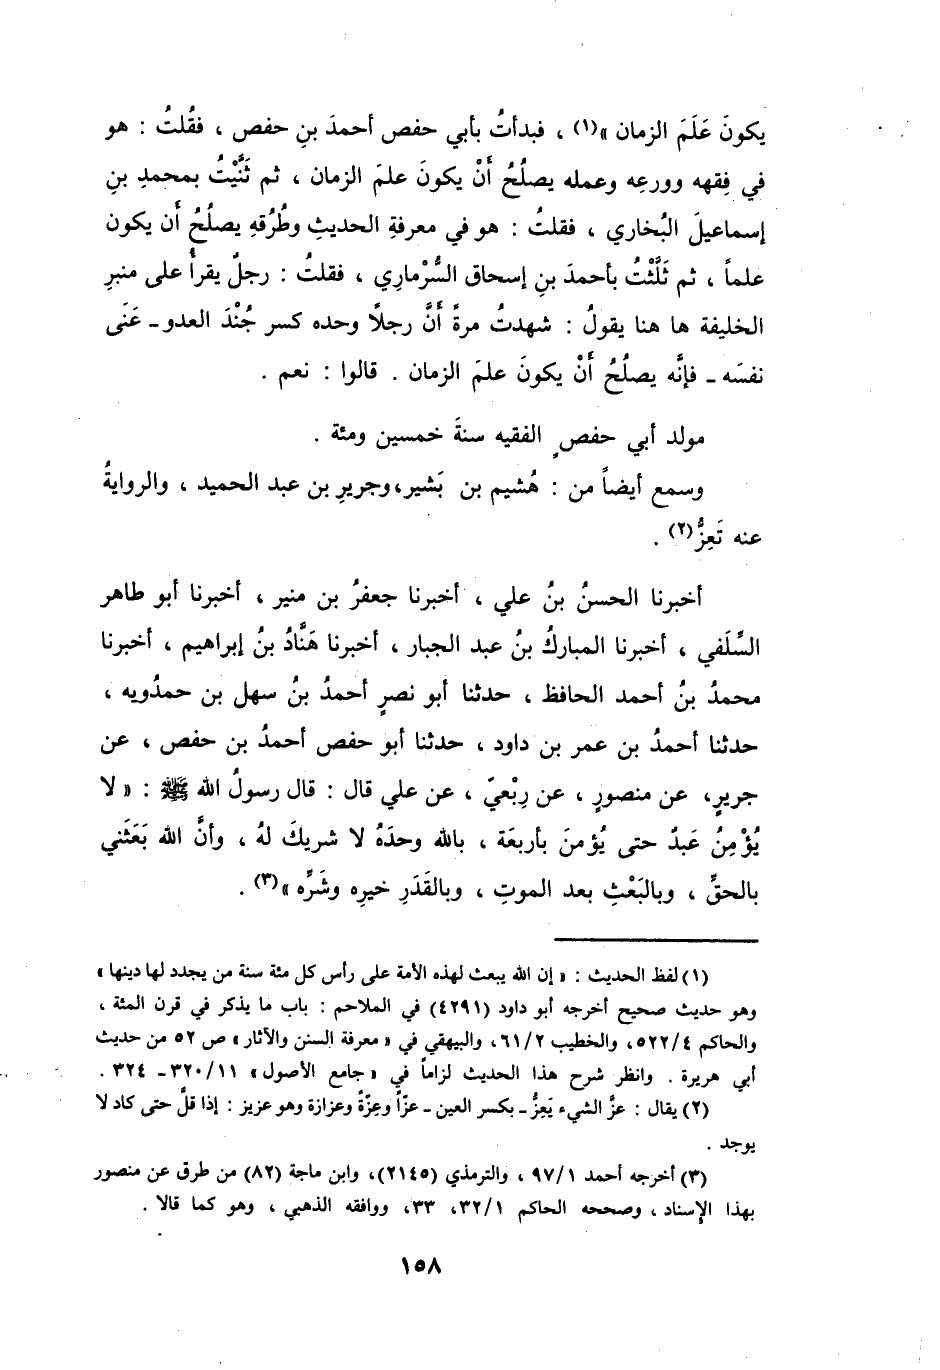 يكونَ عَلَمَ الزمان »(١) ، فبدأتُ بأبي حفص أحمدَ بنِ حفص ، فقُلتُ : هو
في فِقهه وورعِه وعمله يصلُحُ أَنْ يكونَ علمَ الزمان ، ثم ثَنَّيْتُ بمحمدِ بنِ
إسماعيلَ البُخاري ، فقلتُ : هو في معرفةِ الحديثِ وطُرُقهِ يصلُحُ أَن يكون
علماً ، ثم ثَلَّثْتُ بأحمدَ بنِ إسحاق السُّرْماري ، فقلتُ : رجلٌ يقرأُ على منبرِ
الخليفة ها هنا يقولُ : شهدتُ مرةً أَنَّ رجلاً وحده كسر جُنْدَ العدو ـ عَنَى
نفسَه ـ فإنَّه يصلُحُ أَنْ يكونَ علمَ الزمان . قالوا : نعم .
مولد أبي حفصٍ الفقيه سنةَ خمسين ومئة .
وسمع أيضاً من : هُشيم بن بَشير، وجريرِ بن عبد الحميد ، والروايةُ
عنه تَعِزُّ(٢) .
أخبرنا الحسنُ بنُ علي ، أخبرنا جعفرُ بن منير ، أخبرنا أبو طاهر
السِّلَفي ، أخبرنا المباركُ بنُ عبد الجبار ، أخبرنا هَنَّادُ بنُ إبراهيم ، أخبرنا
محمدُ بنُ أحمد الحافظ ، حدثنا أبو نصرٍ أحمدُ بنُ سهل بن حمدُويه ،
حدثنا أحمدُ بن عمر بن داود ، حدثنا أبو حفص أحمدُ بن حفص ، عن
جريرٍ، عن منصورٍ ، عن رِبْعيّ ، عن علي قال : قال رسولُ الله ﷺ : « لا
يُؤْمِنُ عَبدٌ حتى يُؤمنَ بأربعَة ، بالله وحدَهُ لا شريكَ لهُ ، وأنَّ الله بَعَثَني
بالحقِّ ، وبالبَعْثِ بعد الموتِ ، وبالقَدَرِ خيرِه وشَرِّه »(٣) .
(١) لفظ الحديث : « إن الله يبعث لهذه الأمة على رأس كل مئة سنة من يجدد لها دينها »
وهو حديث صحيح أخرجه أبو داود (٤٢٩١) في الملاحم : باب ما يذكر في قرن المئة ،
والحاكم ٥٢٢/٤، والخطيب ٦١/٢، والبيهقي في « معرفة السنن والآثار » ص ٥٢ من حديث
أبي هريرة . وانظر شرح هذا الحديث لزاماً في « جامع الأصول » ٣٢٠/١١ ـ ٣٢٤ .
(٢) يقال : عزَّ الشيء يَعِزُّ ـ بكسر العين ـ عزّاً وعِزّةً وعزازة وهو عزيز : إذا قلَّ حتى كاد لا
يوجد .
(٣) أخرجه أحمد ٩٧/١ ، والترمذي (٢١٤٥)، وابن ماجة (٨٢) من طرق عن منصور
بهذا الإسناد ، وصححه الحاكم ٣٢/١، ٣٣، ووافقه الذهبي ، وهو كما قالا .
١٥٨